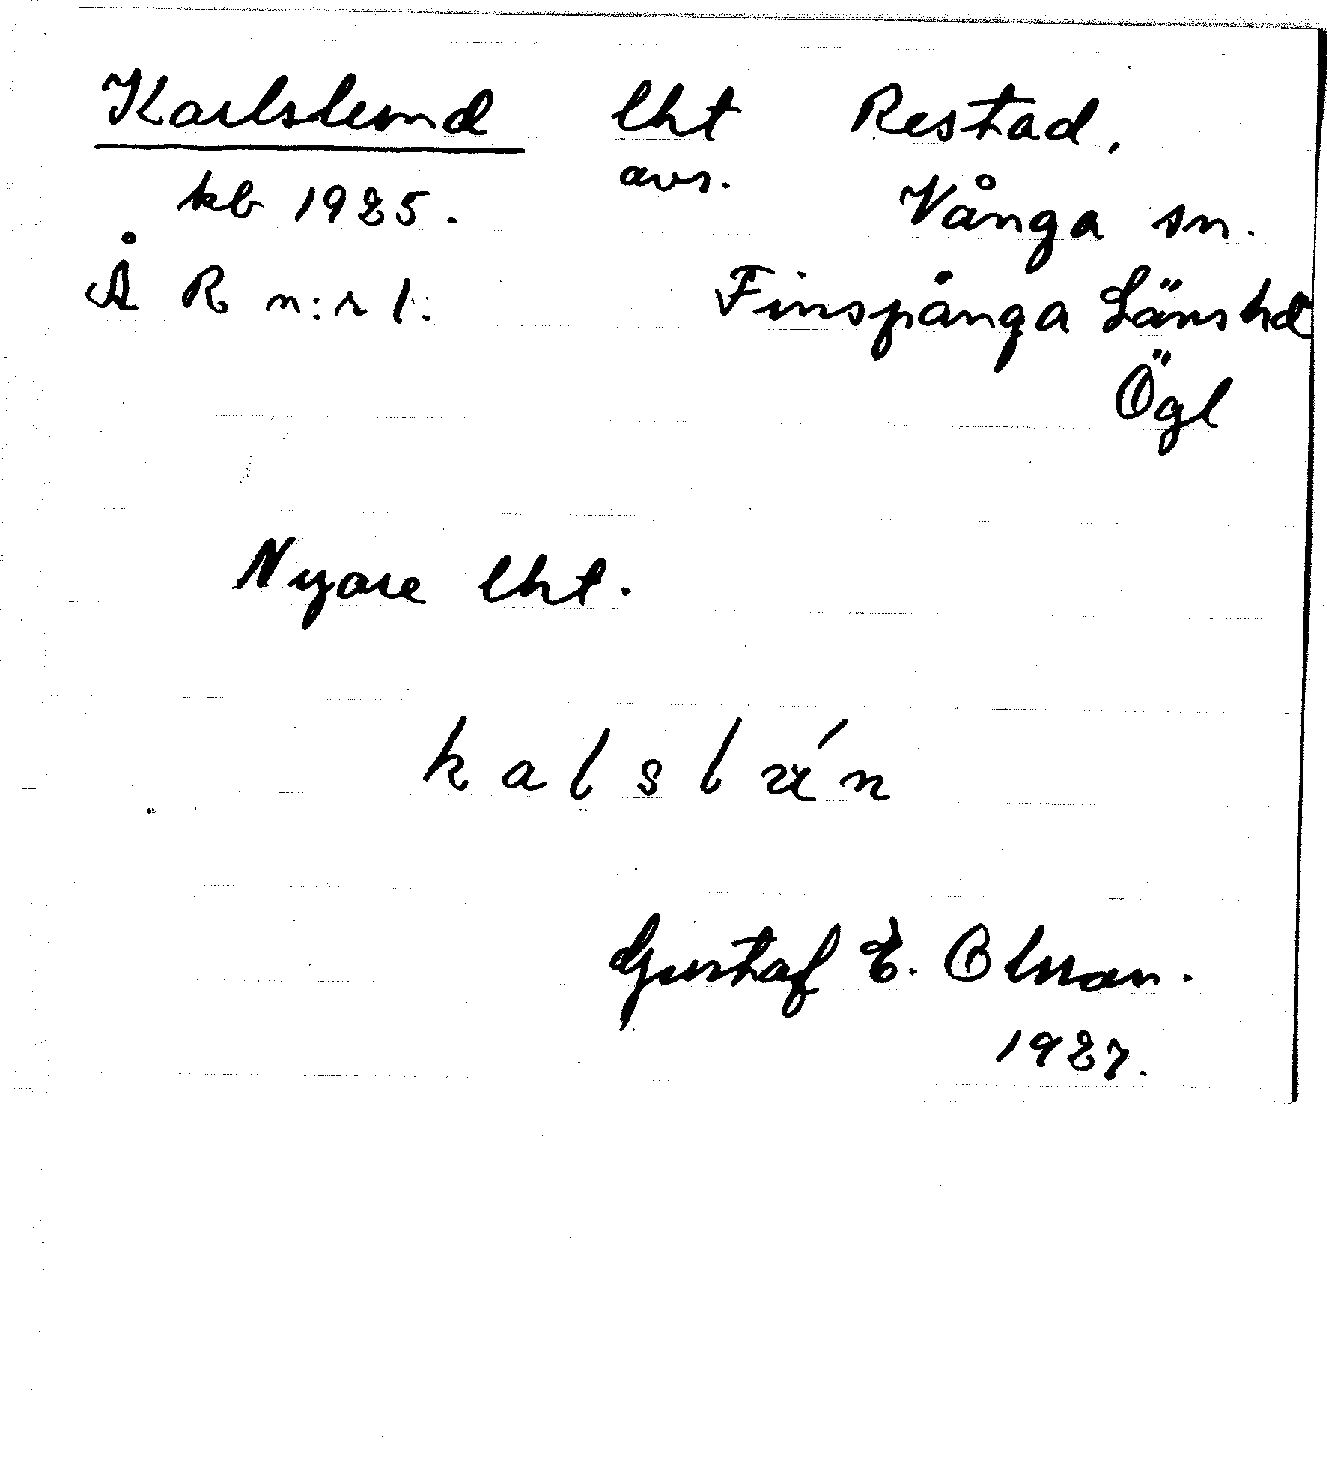 Karlslund lht Restad,
kb 1925. avs. Vånga sn.
Å R n:r 1. Finspånga Länshd
Ögl
Nyare lht.
kalslún
Gustaf E. Olsson.
1927.